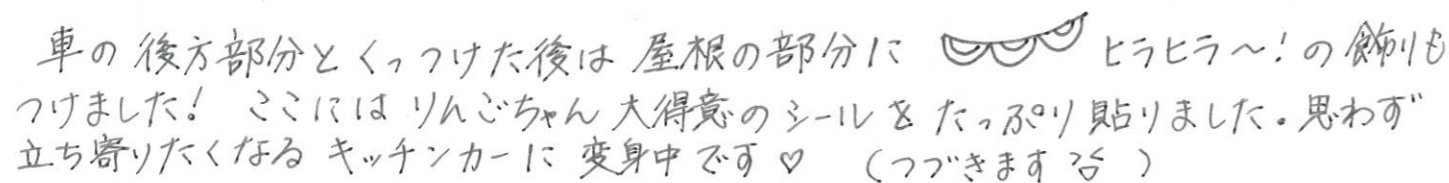 車の後方部分とくっつけた後は屋根の部分に ヒラヒラ〜!の飾りも
つけました! ここにはりんごちゃん大得意のシールをたっぷり貼りました。思わず
立ち寄りたくなるキッチンカーに変身中です♡ (つづきます)